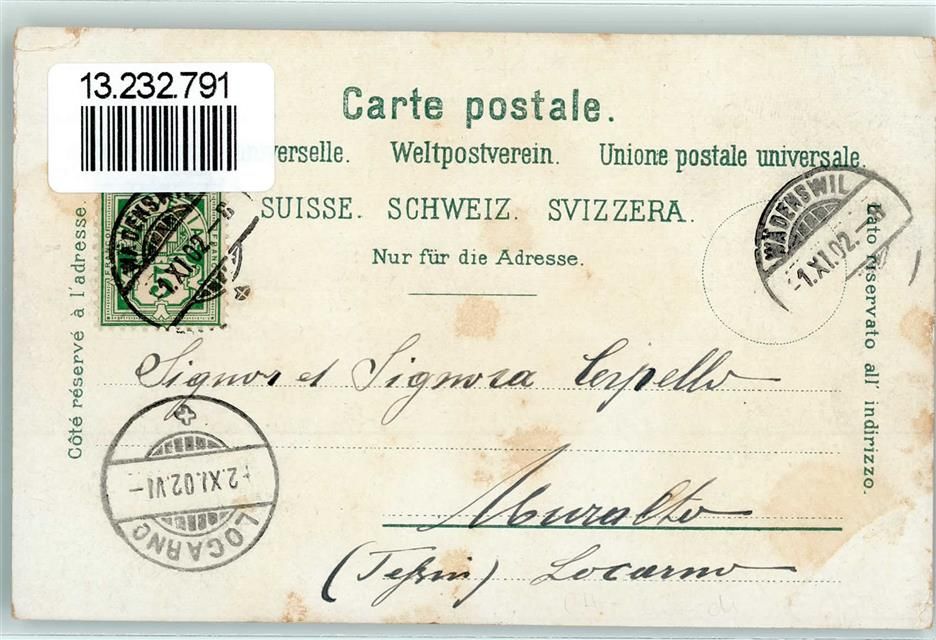 13.232.791
Carte postale.
verselle. Weltpostverein. Unione postale universale.
SUISSE. SCHWEIZ. SVIZZERA.
Nur für die Adresse.
Côté réservé à l'adresse.
Lato riservato all' indirizzo.
WÄDENSWIL
-1.XI.02.-8
WÄDENSWIL
-1.XI.02.-8
FRANCO
5
Signor et Signora Cerpello
Muralto
(Tessin) Locarno
2.XI.02.VI-
LOCARNO